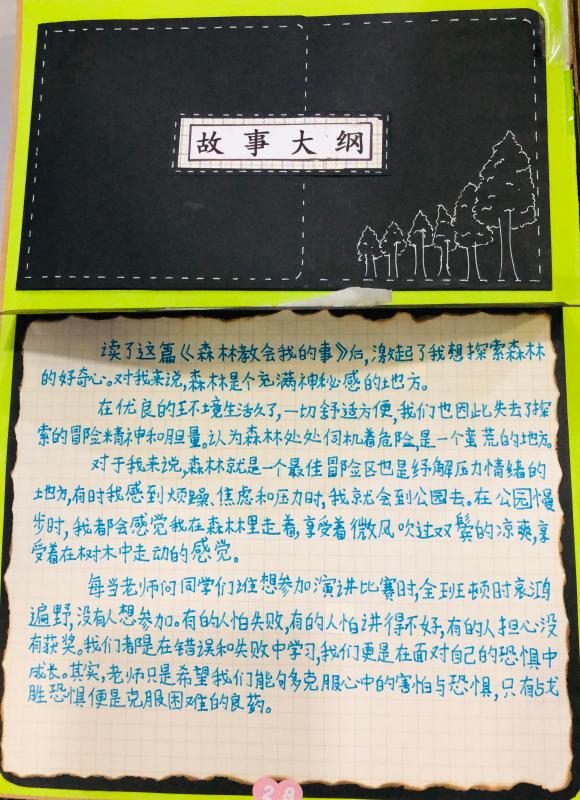 故事大纲
读了这篇《森林教会我的事》后,激起了我想探索森林
的好奇心。对我来说,森林是个充满神秘感的地方。
在优良的环境生活久了,一切舒适方便,我们也因此失去了探
索的冒险精神和胆量。认为森林处处伺机着危险,是一个蛮荒的地方。
对于我来说,森林就是一个最佳冒险区也是纾解压力情绪的
地方,有时我感到烦躁、焦虑和压力时,我就会到公园去。在公园慢
步时,我都会感觉我在森林里走着,享受着微风吹过双鬓的凉爽,享
受着在树木中走动的感觉。
每当老师问同学们谁想参加演讲比赛时,全班顿时哀鸿
遍野,没有人想参加。有的人怕失败,有的人怕讲得不好,有的人担心没
有获奖。我们都是在错误和失败中学习,我们更是在面对自己的恐惧中
成长。其实,老师只是希望我们能够多克服心中的害怕与恐惧,只有战
胜恐惧便是克服困难的良药。
28